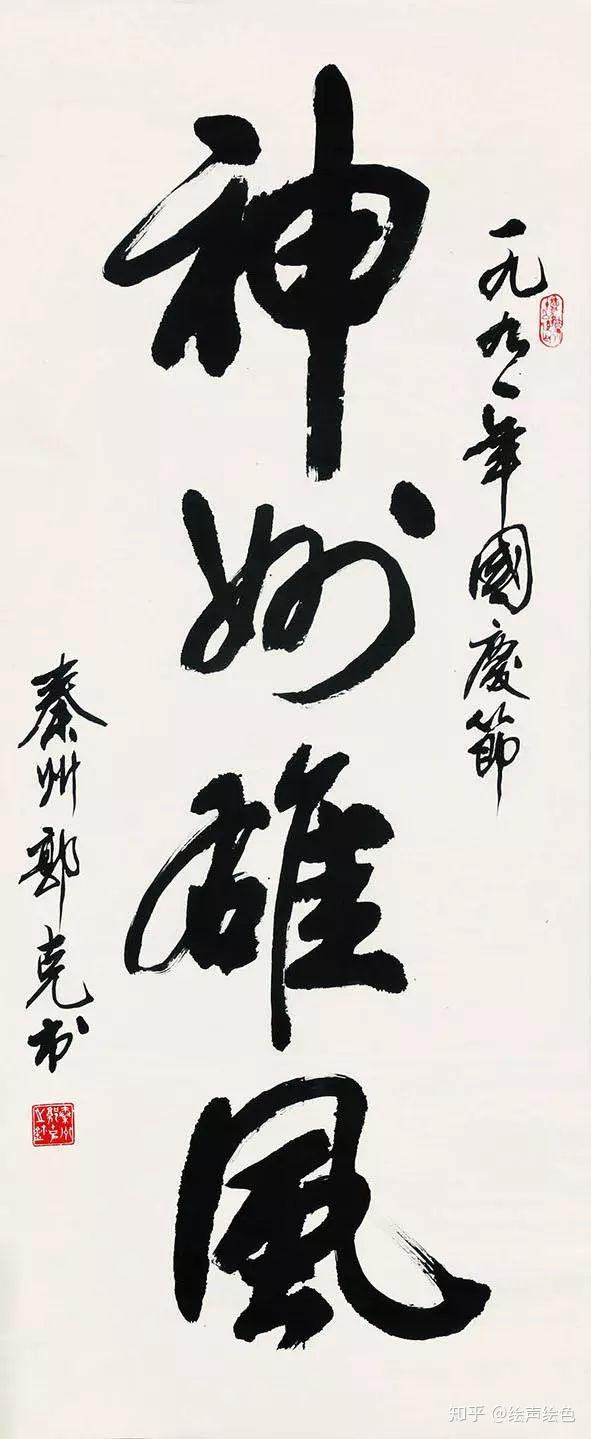 一九九一年國慶節
神州雄風
秦州郭克书
知乎 @绘声绘色